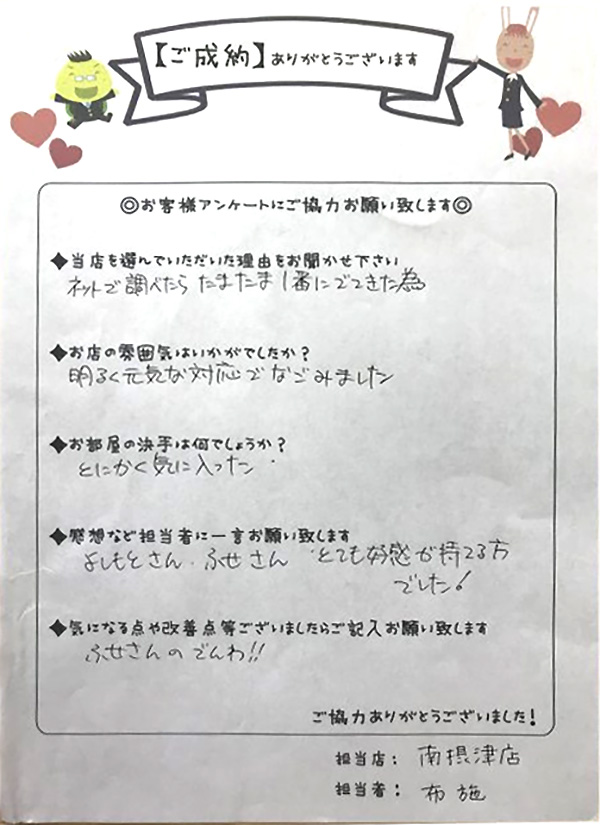 【ご成約】ありがとうございます
◎お客様アンケートにご協力お願い致します◎
◆当店を選んでいただいた理由をお聞かせ下さい
ネットで調べたら たまたま1番にでてきた為
◆お店の雰囲気はいかがでしたか？
明るく元気な対応でなごみました
◆お部屋の決手は何でしょうか？
とにかく気に入った
◆感想など担当者に一言お願い致します
よしもとさん・ふせさん とても好感が持てる方
でした!
◆気になる点や改善点等ございましたらご記入お願い致します
ふせさんのでんわ!!
ご協力ありがとうございました！
担当店： 南摂津店
担当者： 布施